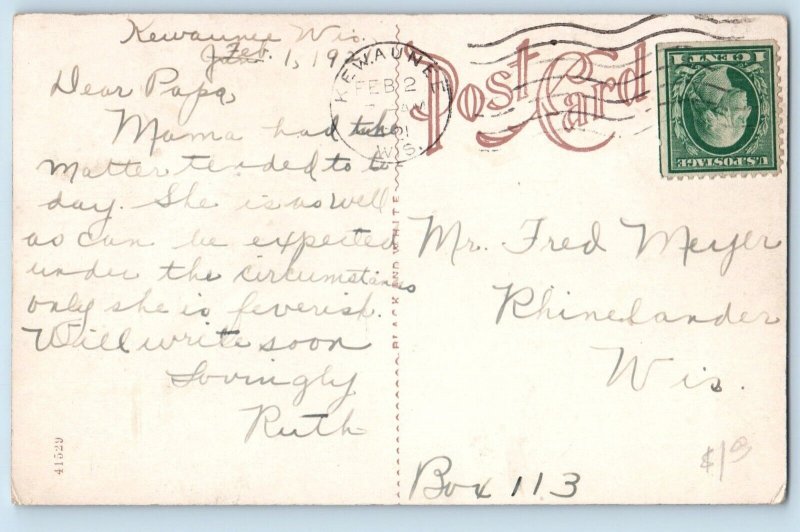 Kewaunee Wis.
Feb. 1, 192
Dear Papa,
Mama had the
matter tended to to
day. She is as well
as can be expected
under the circumstances
only she is feverish.
Will write soon
Lovingly
Ruth
41529
BLACK AND WHITE
Post Card
KEWAUNEE
FEB 2
WIS.
1 CENT 1
U.S. POSTAGE
Mr. Fred Meyer
Rhinelander
Wis.
Box 113